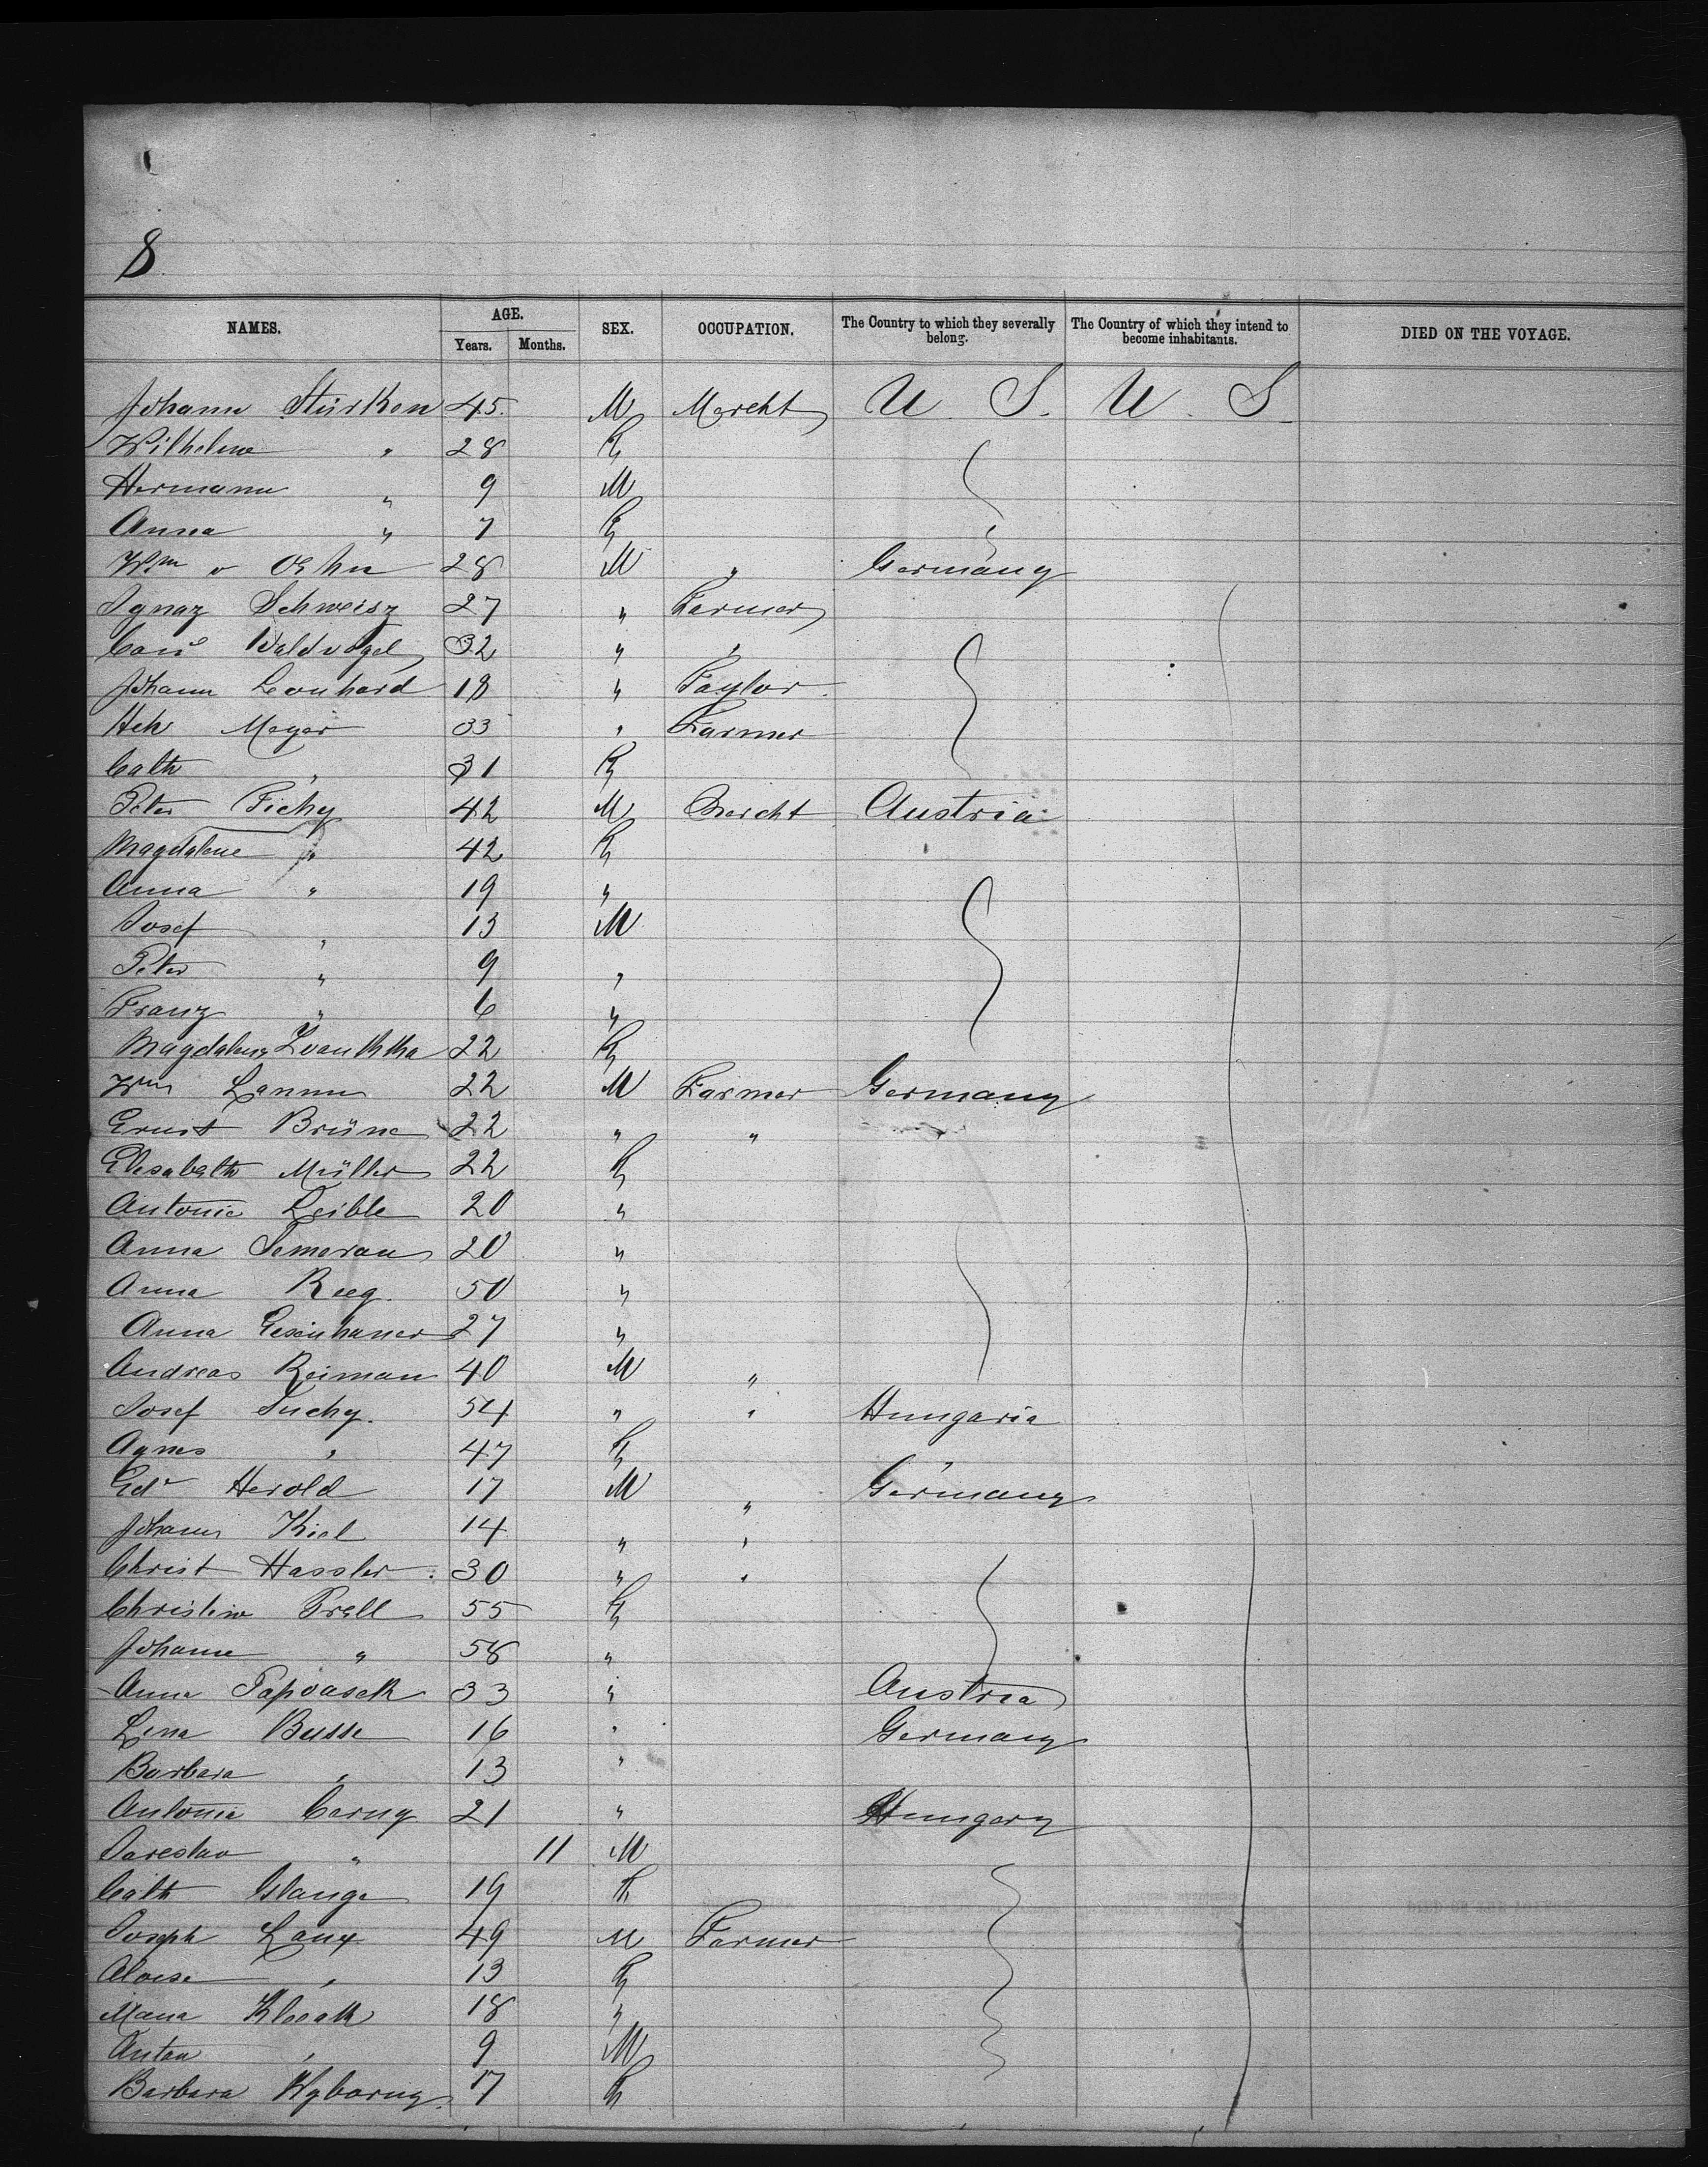 8
NAMES. AGE. SEX. OCCUPATION. The Country to which they severally belong. The Country of which they intend to become inhabitants. DIED ON THE VOYAGE.
Years. Months.
Johann Stürken 45. M Mercht U. S. U. S
Wilhelme " 28 F
Hermann " 9 M
Anna " 7 F
Wm v 28 M " Germany
Ignaz Schweisz 27 " Farmer
Waldvogel 32 " "
Johann Leonhard 18 " Taylor
Hch Meyer 33 " Farmer
Cath " 31 F
Peter Fichy 42 M Mercht Austria
Magdalene " 42 F
Anna " 19 "
Josef " 13 M
Peter " 9 "
Franz " 6 "
Magdalena 22 F
Wm 22 M Farmer Germany
Ernst Brüne 22 " "
Elisabeth Müller 22 F
Antonie Leible 20 "
Anna Semerau 20 "
Anna Reeg. 50 "
Anna 27 "
Andreas Reiman 40 M "
Josef Suchy. 54 " " Hungaria
Agnes " 47 F
Edr Herold 17 M " Germany
Johann Kiel 14 " "
Christ Hassler 30 " "
Christine Prell 55 F
Johanne " 58 "
Anna 33 " Austria
Lina Busse 16 " Germany
Barbara " 13 "
Antonia Cerny 21 " Hungary
Jareslav " 11 M
Cath 19 F
Joseph Laux 49 M Farmer
Aloise " 13 F
18 "
Anton " 9 M
Barbara Wyborny. 17 F